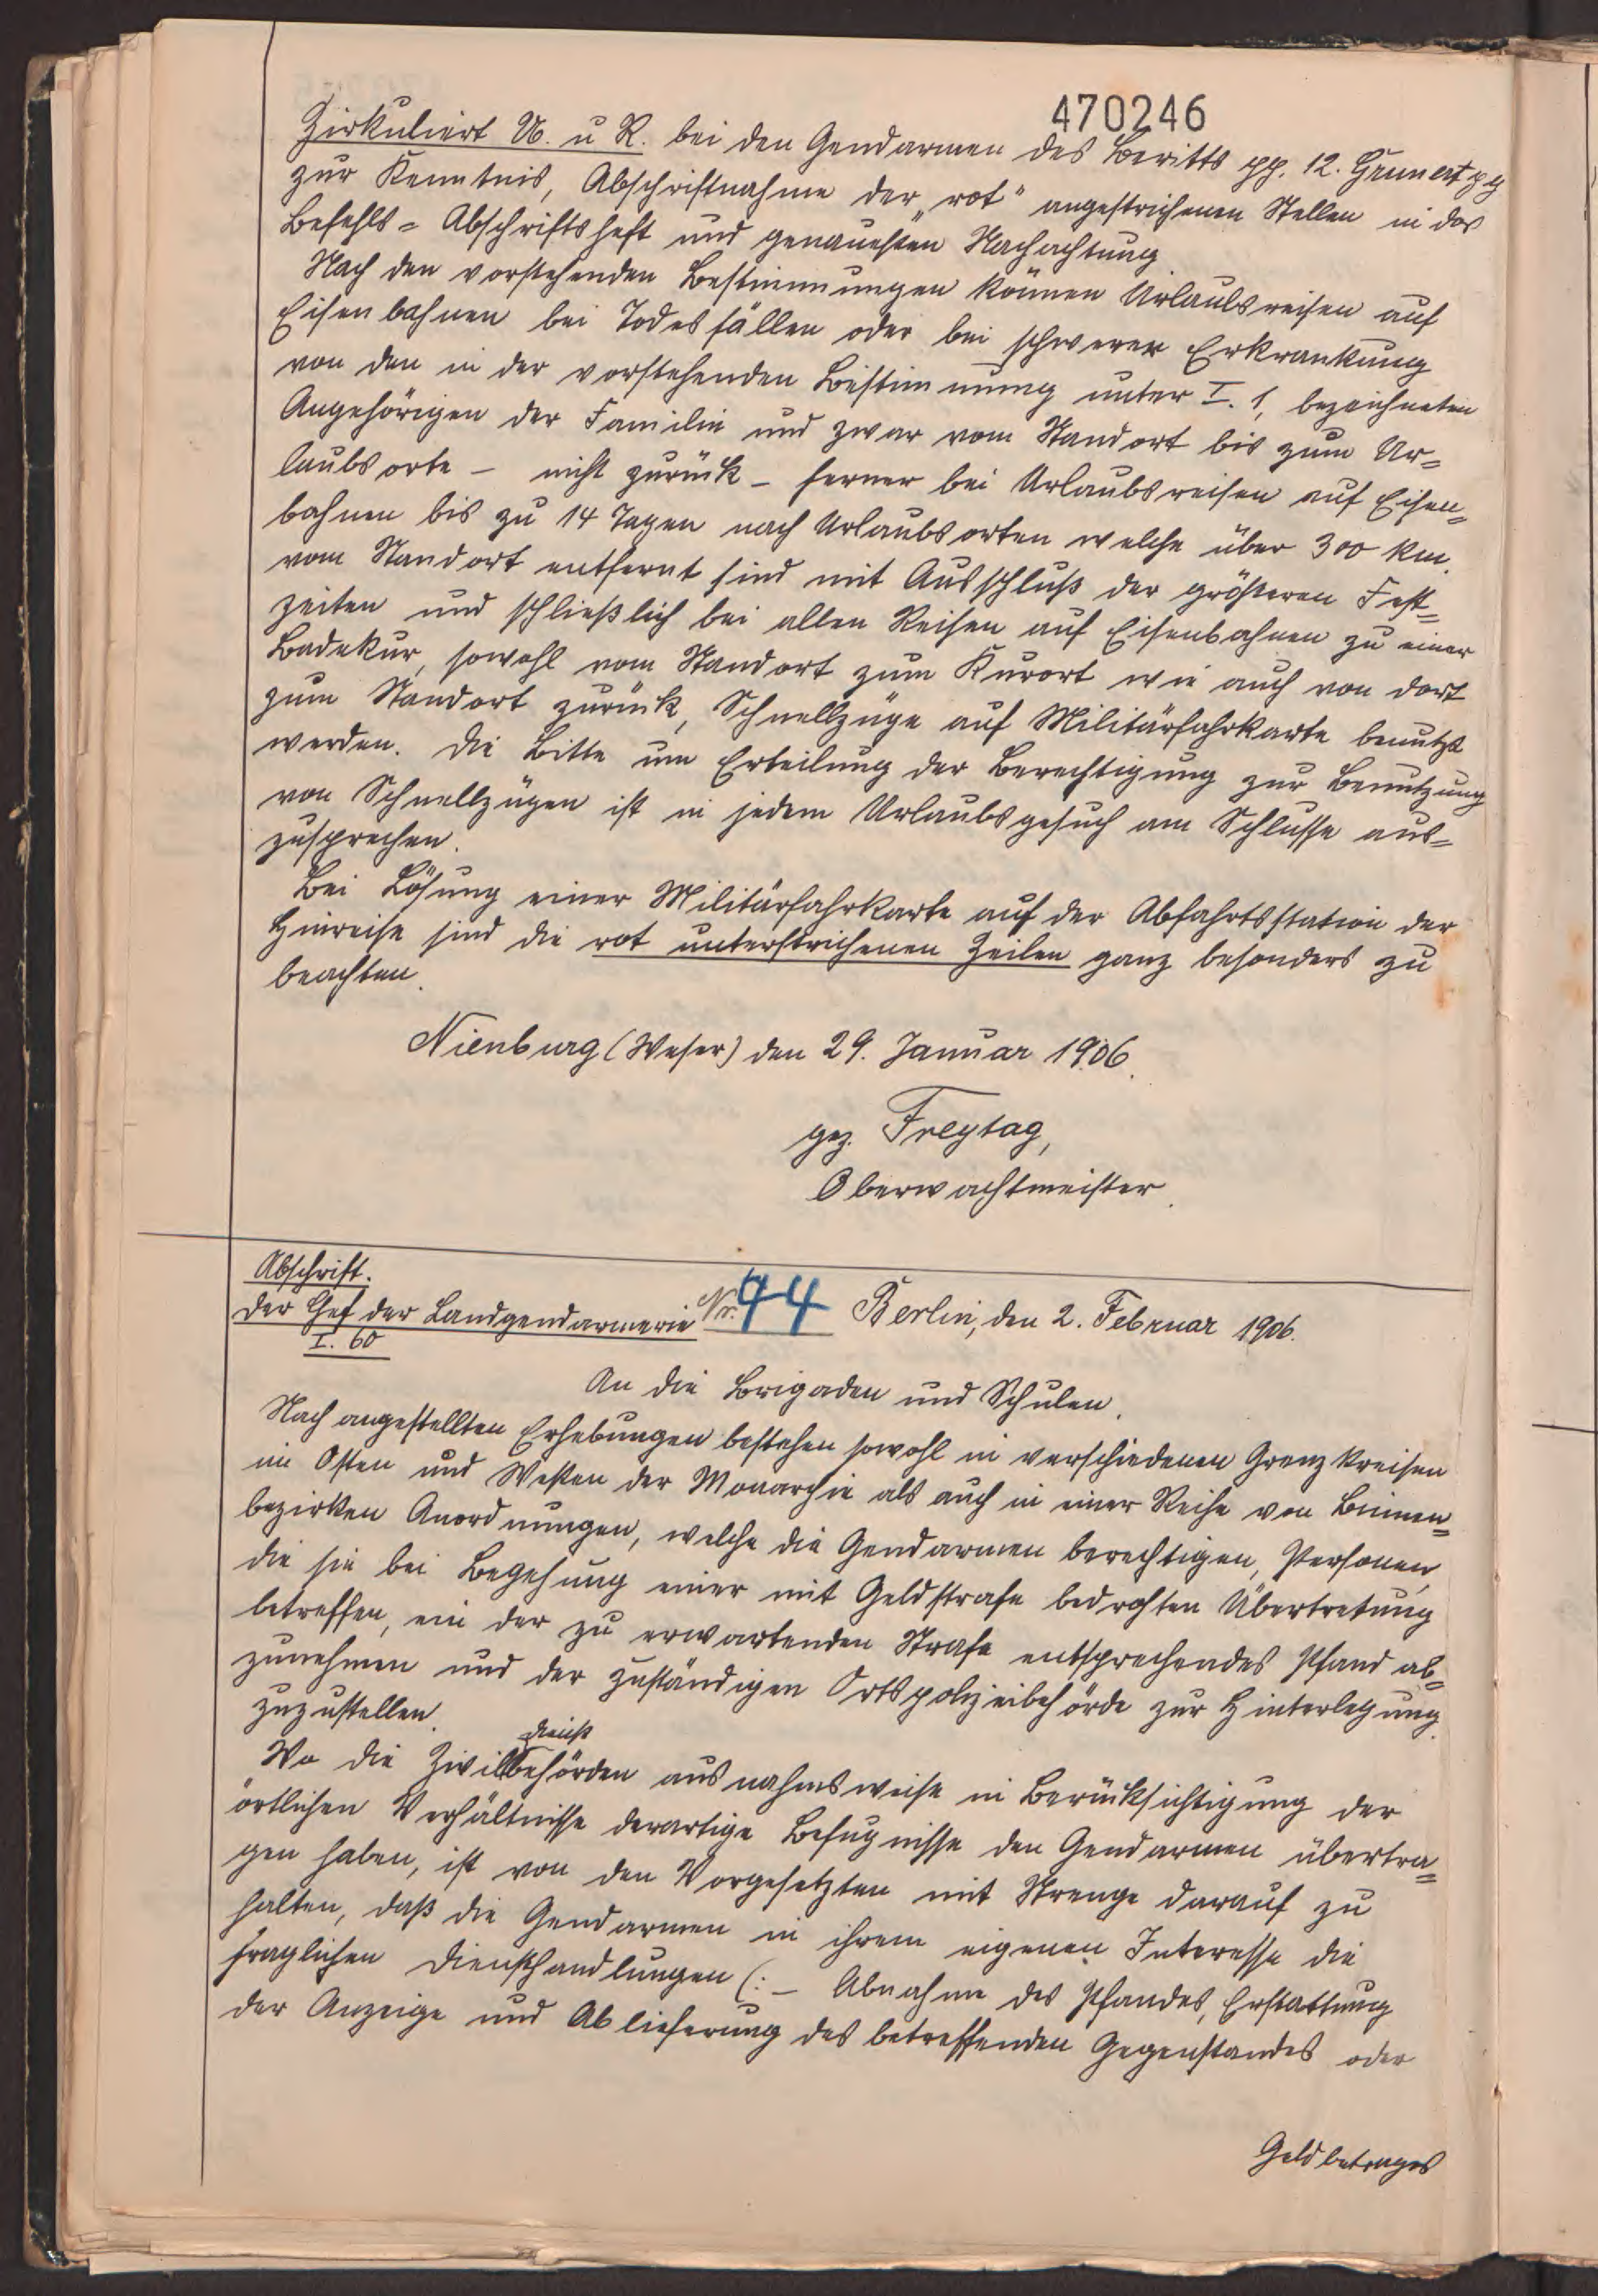 470246
Zirkuliert U. u R. bei den Gendarmen des Beritts pp. 12. Grunert pg
zur Kenntnis, Abschriftnahme der „rot" angestrichenen Stellen in das
Befehls= Abschriftsheft und genauesten Nachachtung
Nach den vorstehenden Bestimmungen können Urlaubsreisen auf
Eisenbahnen bei Todesfällen oder bei schwerer Erkrankung
von den in der vorstehenden Bestimmung unter I. 1, bezeichneten
Angehörigen der Familie und zwar vom Standort bis zum Ur=
laubsorte – nicht zurück – ferner bei Urlaubsreisen auf Eisen=
bahnen bis zu 14 Tagen nach Urlaubsorten welche über 300 km.
vom Standort entfernt sind mit Ausschluß der größeren Fest=
zeiten und schließlich bei allen Reisen auf Eisenbahnen zu einer
Badekur, sowohl vom Standort zum Kurort wie auch von dort
zum Standort zurück, Schnellzüge auf Militärfahrkarte benutzt
werden. Die Bitte um Erteilung der Berechtigung zur Benutzung
von Schnellzügen ist in jedem Urlaubsgesuch am Schlusse aus=
zusprechen.
Bei Lösung einer Militärfahrkarte auf der Abfahrtsstation der
Hinreise sind die rot unterstrichenen Zeilen ganz besonders zu
beachten.
Nienburg (Weser) den 29. Januar 1906.
gez. Freytag,
Oberwachtmeister.
Abschrift.
Der Chef der Landgendarmerie Nr. 94 Berlin, den 2. Februar 1906.
I. 60
An die Brigaden und Schulen.
Nach angestellten Erhebungen bestehen sowohl in verschiedenen Grenzkreisen
im Osten und Westen der Monarchie als auch in einer Reihe von Binnen=
bezirken Anordnungen, welche die Gendarmen berechtigen, Personen,
die sie bei Begehung einer mit Geldstrafe bedrohten Übertretung
betreffen, ein der zu erwartenden Strafe entsprechendes Pfand ab=
zunehmen und der zuständigen Ortspolizeibehörde zur Hinterlegung.
zuzustellen.
dienst
Wo die Zivilbehörden ausnahmsweise in Berücksichtigung der
örtlichen Verhältnisse derartige Befugnisse den Gendarmen übertra=
gen haben, ist von den Vorgesetzten mit Strenge darauf zu
halten, daß die Gendarmen in ihrem eigenen Interesse die
fraglichen Diensthandlungen (: – Abnahme des Pfandes, Erstattung
der Anzeige und Ablieferung des betreffenden Gegenstandes oder
Geldbetrages